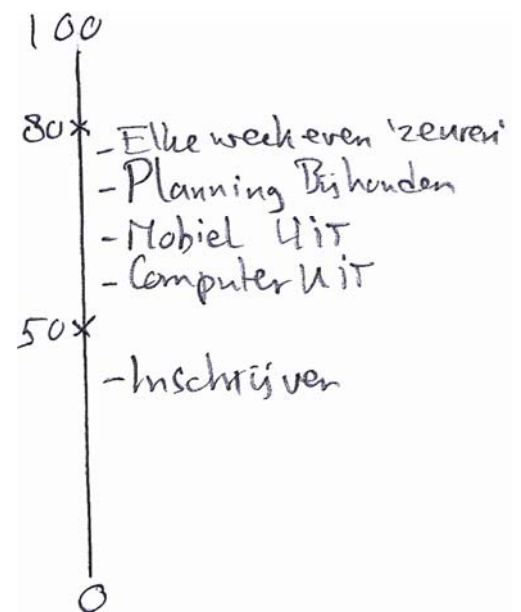 100
80
- Elke week even 'zeuren'
- Planning Bijhouden
- Mobiel Uit
- Computer Uit
50
- Inschrijven
0